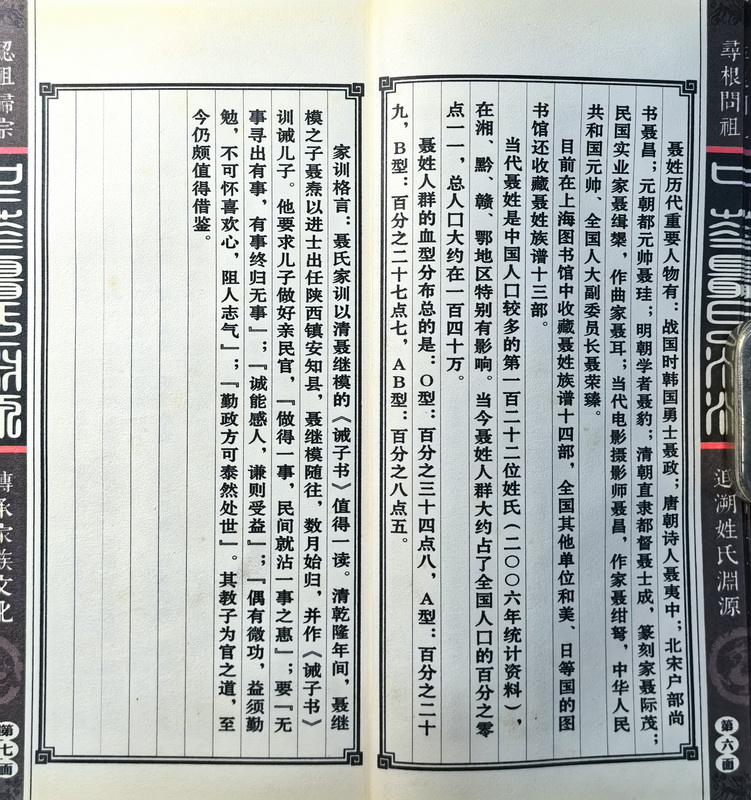 尋根問祖
追溯姓氏淵源
第六面
聂姓历代重要人物有：战国时韩国勇士聂政；唐朝诗人聂夷中；北宋户部尚
书聂昌；元朝都元帅聂珪；明朝学者聂豹；清朝直隶都督聂士成，篆刻家聂际茂；
民国实业家聂缉椝，作曲家聂耳；当代电影摄影师聂晶，作家聂绀弩，中华人民
共和国元帅、全国人大副委员长聂荣臻。
目前在上海图书馆中收藏聂姓族谱十四部，全国其他单位和美、日等国的图
书馆还收藏聂姓族谱十三部。
当代聂姓是中国人口较多的第一百二十二位姓氏（二〇〇六年统计资料），
在湘、黔、赣、鄂地区特别有影响。当今聂姓人群大约占了全国人口的百分之零
点一一，总人口大约在一百四十万。
聂姓人群的血型分布总的是：O型：百分之三十四点八，A型：百分之二十
九，B型：百分之二十七点七，AB型：百分之八点五。
家训格言：聂氏家训以清聂继模的《诫子书》值得一读。清乾隆年间，聂继
模之子聂焘以进士出任陕西镇安知县，聂继模随往，数月始归，并作《诫子书》
训诫儿子。他要求儿子做好亲民官，『做得一事，民间就沾一事之惠』；要『无
事寻出有事，有事终归无事』；『诚能感人，谦则受益』；『偶有微功，益须勤
勉，不可怀喜欢心，阻人志气』；『勤政方可泰然处世』。其教子为官之道，至
今仍颇值得借鉴。
認祖歸宗
傳承家族文化
第七面